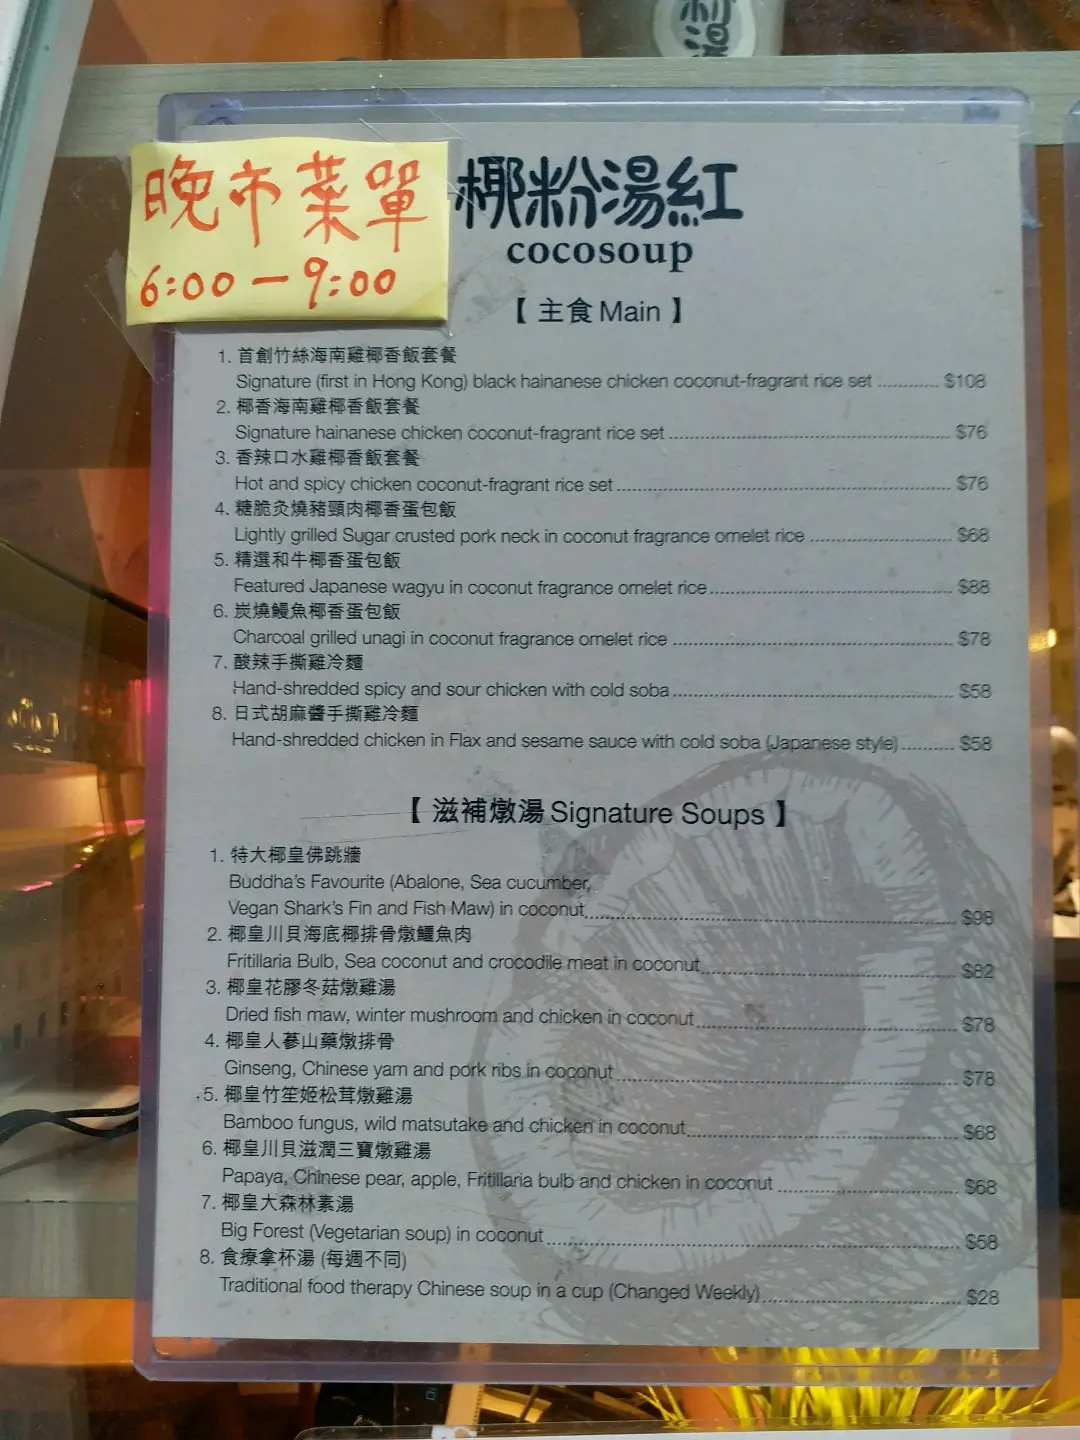 晚市菜單
6:00－9:00
椰粉湯紅
cocosoup
【 主食 Main 】
1. 首創竹絲海南雞椰香飯套餐
Signature (first in Hong Kong) black hainanese chicken coconut-fragrant rice set ............ $108
2. 椰香海南雞椰香飯套餐
Signature hainanese chicken coconut-fragrant rice set ............ $76
3. 香辣口水雞椰香飯套餐
Hot and spicy chicken coconut-fragrant rice set ............ $76
4. 糖脆灸燒豬頸肉椰香蛋包飯
Lightly grilled Sugar crusted pork neck in coconut fragrance omelet rice ............ $68
5. 精選和牛椰香蛋包飯
Featured Japanese wagyu in coconut fragrance omelet rice ............ $88
6. 炭燒鰻魚椰香蛋包飯
Charcoal grilled unagi in coconut fragrance omelet rice ............ $78
7. 酸辣手撕雞冷麵
Hand-shredded spicy and sour chicken with cold soba ............ $58
8. 日式胡麻醬手撕雞冷麵
Hand-shredded chicken in Flax and sesame sauce with cold soba (Japanese style) .......... $58
【 滋補燉湯 Signature Soups 】
1. 特大椰皇佛跳牆
Buddha's Favourite (Abalone, Sea cucumber,
Vegan Shark's Fin and Fish Maw) in coconut ............ $98
2. 椰皇川貝海底椰排骨燉鱷魚肉
Fritillaria Bulb, Sea coconut and crocodile meat in coconut ............ $82
3. 椰皇花膠冬菇燉雞湯
Dried fish maw, winter mushroom and chicken in coconut ............ $78
4. 椰皇人蔘山藥燉排骨
Ginseng, Chinese yam and pork ribs in coconut ............ $78
5. 椰皇竹笙姬松茸燉雞湯
Bamboo fungus, wild matsutake and chicken in coconut ............ $68
6. 椰皇川貝滋潤三寶燉雞湯
Papaya, Chinese pear, apple, Fritillaria bulb and chicken in coconut ............ $68
7. 椰皇大森林素湯
Big Forest (Vegetarian soup) in coconut ............ $58
8. 食療拿杯湯 (每週不同)
Traditional food therapy Chinese soup in a cup (Changed Weekly) ............ $28